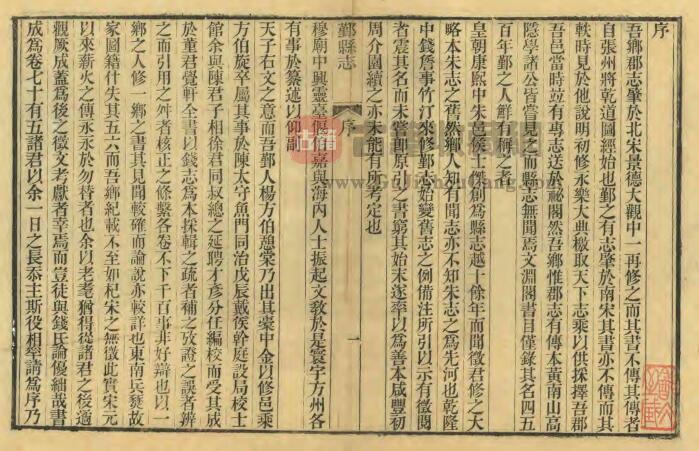 序
吾鄉郡志肇於北宋景德大觀中一再修之而其書不傳其傳者
自張州將乾道圖經始也鄞之有志肇於南宋其書亦不傳而其
軼時見於他說明初修永樂大典檄取天下志乘以供採擇吾郡
吾邑當時竝有專志送於祕閣然吾鄉惟郡志有傳本黃南山高
隱學諸公皆嘗見之而縣志無聞焉文淵閣書目僅錄其名四五
百年鄞之人鮮有稱之者
皇朝康熙中朱邑侯士傑創為縣志越十餘年而聞徵君修之大
略本朱志之舊然鄉人知有聞志亦不知朱志之為先河也乾隆
中錢詹事竹汀來修鄞志始變舊志之例備注所引以示有徵閱
者震其名而未嘗卽原引之書窮其始末遂率以為善本咸豐初
周介園續之亦未能有所考定也
鄞縣志
序
一
穆廟中興靈臺偃伯嘉與海內人士振起文敎於是寰宇方州各
有事於纂述以仰副
天子右文之意而吾鄞人楊方伯憩棠乃出其橐中金以修邑乘
方伯旋卒屬其事於陳太守魚門同治戊辰戴侯幹庭設局校士
館余與陳君子相徐君同叔總之延聘才彥分任編校而受其成
於董君覺軒全書以錢志為本採輯之疏者補之攷證之誤者辨
之而引用之舛者核正之條繫各卷不下千百事非好辯也以一
鄉之人修一鄉之書其見聞較確而論說亦較詳也東南兵燹故
家圖籍什失其五六而吾鄉紀載不至如杞宋之無徵此實宋元
以來薪火之傳永永於勿替者也余以老耄猶得從諸君之後適
觀厥成蓋為後之徵文考獻者幸焉而豈徒與錢氏論優絀哉書
成為卷七十有五諸君以余一日之長忝主斯役相率請為序乃
www.GuJiShouCang.com